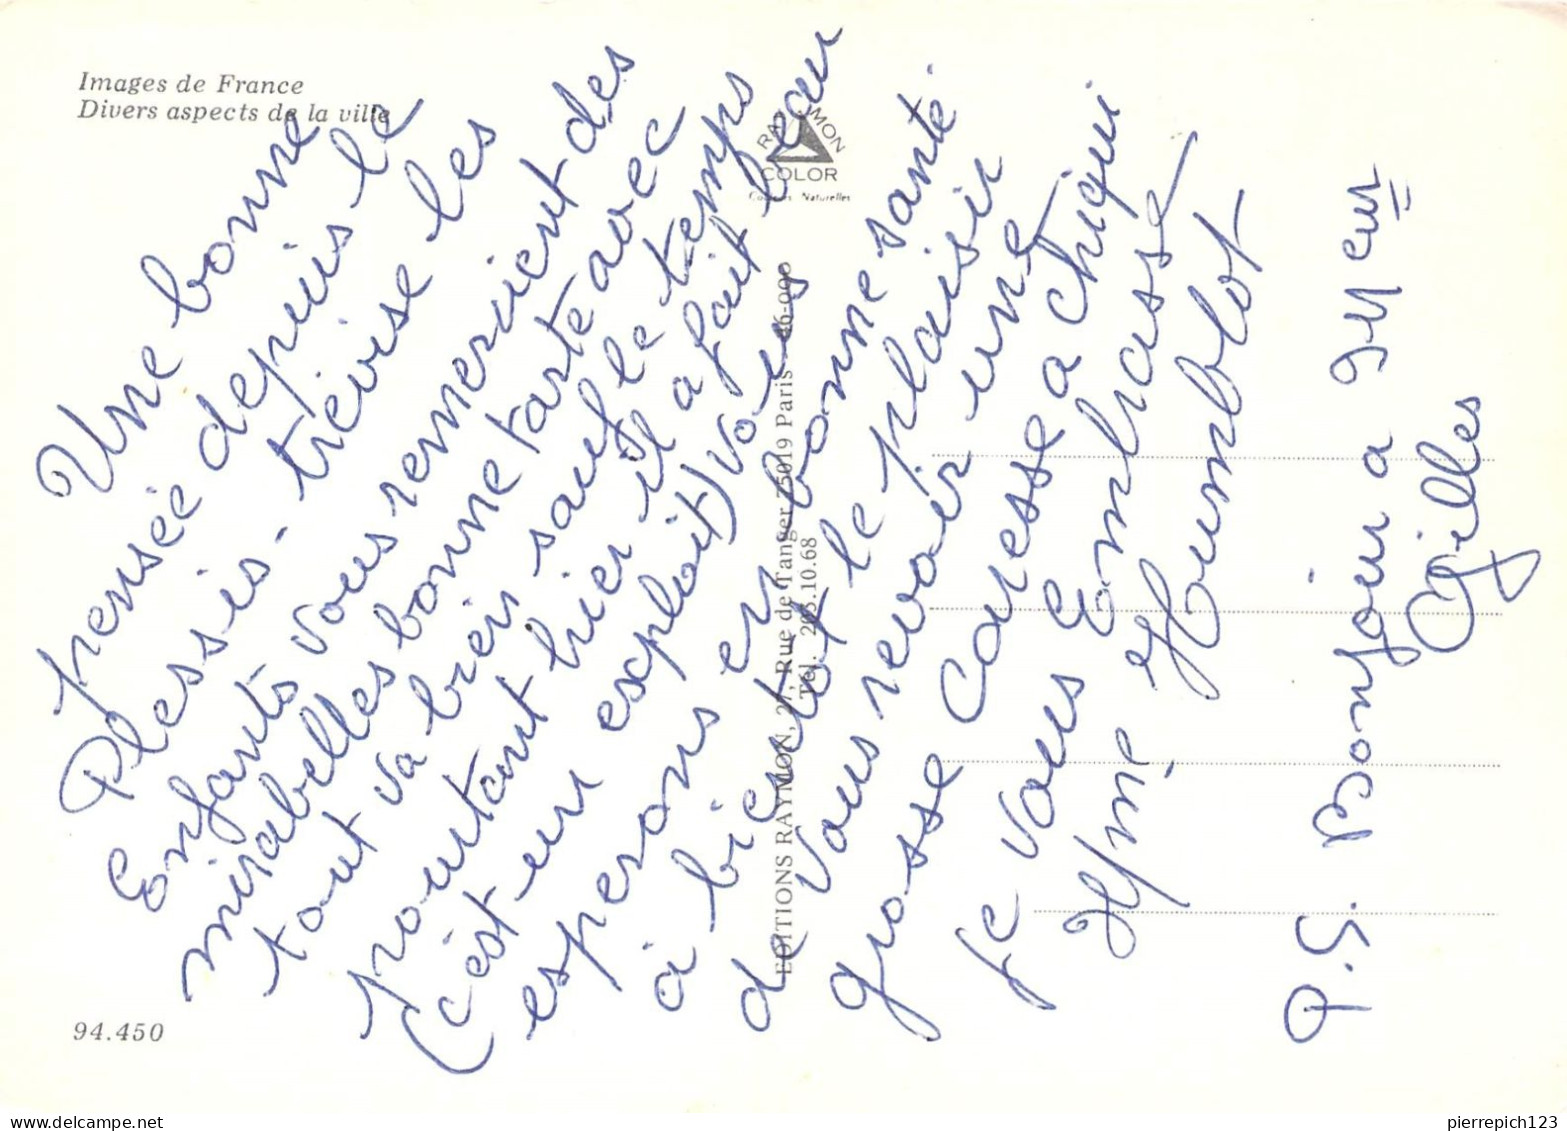 Images de France
Divers aspects de la ville
RAYMON
COLOR
Couleurs Naturelles
EDITIONS RAYMON, 27, Rue de Tanger 75019 Paris - 46-000
Tél. 205.10.68
94.450
Une bonne
pensée depuis le
Plessis-trévise les
Enfants vous remerient des
mirabelles bonne tarte avec
tout va bien sauf le temps
pourtant hier il a fait beau
(c'est un exploit) vous
esperons en bonne santé
à bientot le plaisir
de vous revoir une
grosse caresse a chiqui
je vous Embrasse
Mme Humblot
P.S. Bonjour a Meur
Gilles
pierrepich123